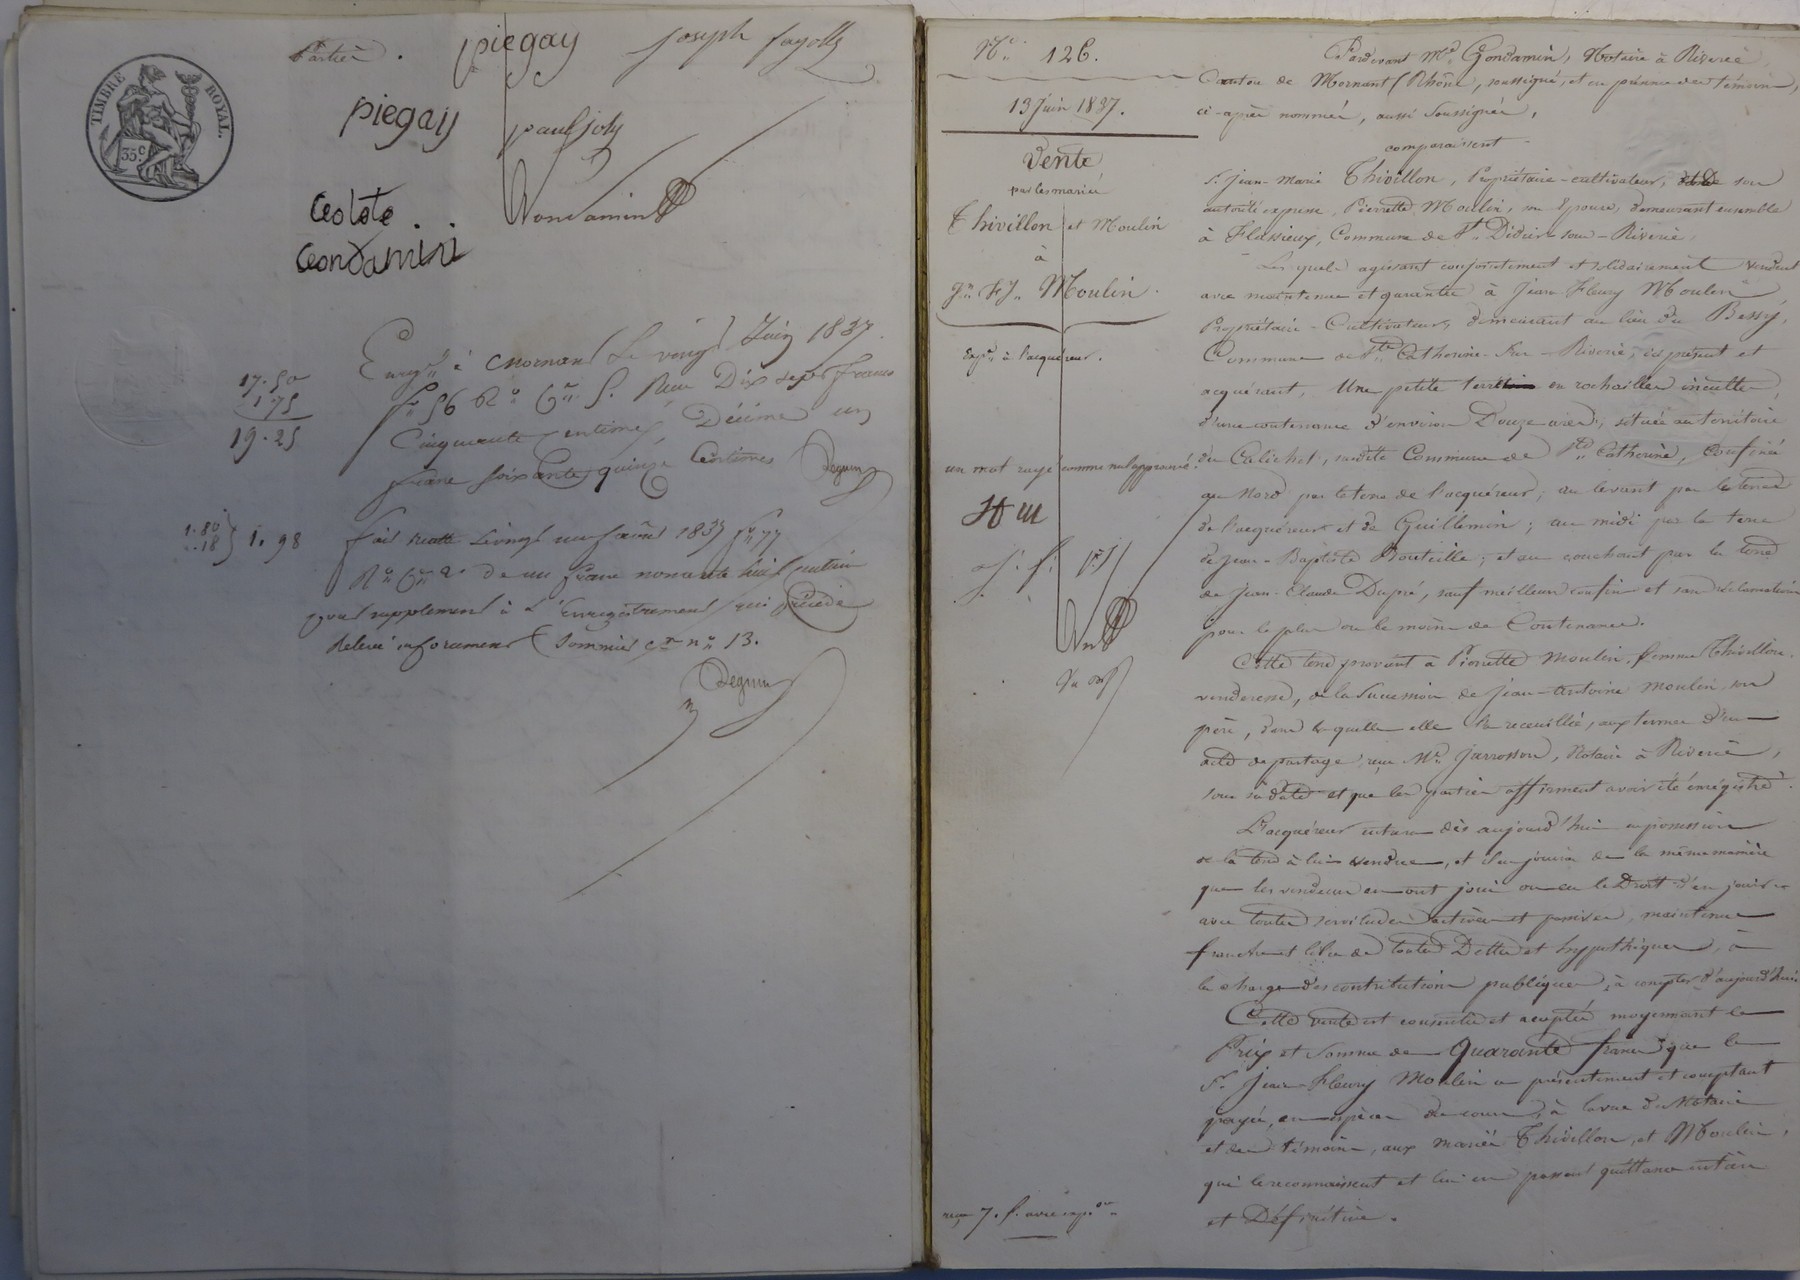 TIMBRE ROYAL.
35 c
Parties. piegay Joseph fayolle
piegay paul joly
Gondamin
Colote.
Condamin
Enreg.té à Mornant Le vingt Juin 1837.
f.o 56 R.o C.es 5. Reçu Dix sept francs
Cinquante centimes, Décime un
franc soixante quinze Centimes Deguin
17.50
1.75
19.25
1.80
.18 } 1.98
fait recette 1837 f.o 77
R.o C.es 2. de un franc nonante huit centimes
pour supplement à L'Enregistrement qui précède
Relevé Sommier c.te n.o 13.
Deguin
N.o 126.
13 Juin 1837.
Vente
par les mariés
Thivillon et Moulin
à
J.n F.y Moulin.
Exp.on à l'acquéreur.
un mot rayé comme nul approuvé.
reçu 7. f. avec exp.on
Pardevant M.e Gondamin, Notaire à Riverie
Canton de Mornant (Rhône), soussigné, et en présence des témoins,
ci-après nommés, aussi soussignés,
comparaissent
S.r Jean-Marie Thivillon, Propriétaire-cultivateur, et de son
autorité expresse, Pierrette Moulin, son Epouse, demeurant ensemble
à Flassieux, Commune de S.t Didier sous-Riverie,
Lesquels agissant conjointement et solidairement vendent
avec maintenue et garantie à Jean Fleury Moulin
Propriétaire-Cultivateur, demeurant au lieu du Bessy,
Commune de S.te Catherine-Sur-Riverie, ici présent et
acquérant, Une petite terre en rochailles inculte,
d'une contenance d'environ Douze ares, située au territoire
du Calichet, susdite Commune de S.te Catherine, Confinée
au Nord par la terre de l'acquéreur; au levant par la terre
de l'acquéreur et de Guillemin; au midi par la terre
de Jean-Baptiste Bouteille; et au couchant par la terre
de Jean-Claude Dupré, sauf meilleurs confins et sans réclamation
pour le plus ou le moins de Contenance.
Cette terre provient à Pierrette Moulin, femme Thivillon
venderesse, de la Succession de Jean-Antoine Moulin, son
père, dans laquelle elle l'a recueillie, aux termes d'un
acte de partage, reçu M.e Jarrosson, Notaire à Riverie,
sous sa date et que les parties affirment avoir été enregistré.
L'acquéreur entrera dès aujourd'hui en possession
de la terre à lui vendue, et d'en jouira de la même manière
que les vendeurs en ont joui ou eu le Droit d'en jouir
avec toutes servitudes actives et passives, maintenue
franche et libre de toutes Dettes et hypothèques, à
la charge des contributions publiques, à compter d'aujourd'hui
Cette vente est consentie et acceptée moyennant le
Prix et Somme de Quarante francs que le
S.r Jean-Fleury Moulin a présentement et comptant
payée, en espèces de cours, à la vue du Notaire
et des témoins, aux mariés Thivillon, et Moulin,
qui le reconnaissent et lui en passent quittance entière
et Définitive.